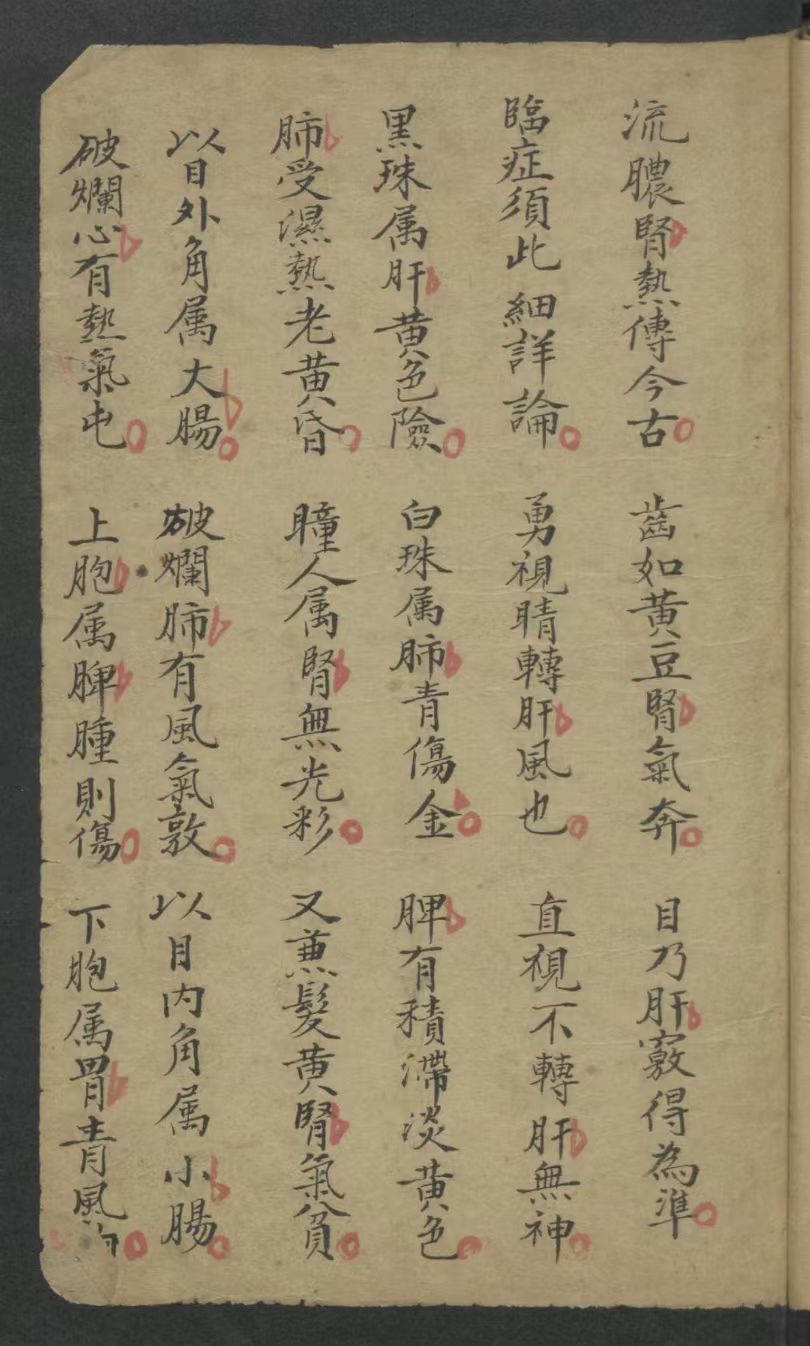 流膿腎熱傳今古 齒如黃豆腎氣奔 目乃肝竅得為準
臨症須此細詳論 勇視睛轉肝風也 直視不轉肝無神
黑珠属肝黃色險 白珠属肺青傷金 脾有積滯淡黃色
肺受濕熱老黃昏 瞳人属腎無光彩 又兼髮黃腎氣貧
以目外角属大腸 破爛肺有風氣敦 以目内角属小腸
破爛心有熱氣屯 上胞属脾腫則傷 下胞属胃青風